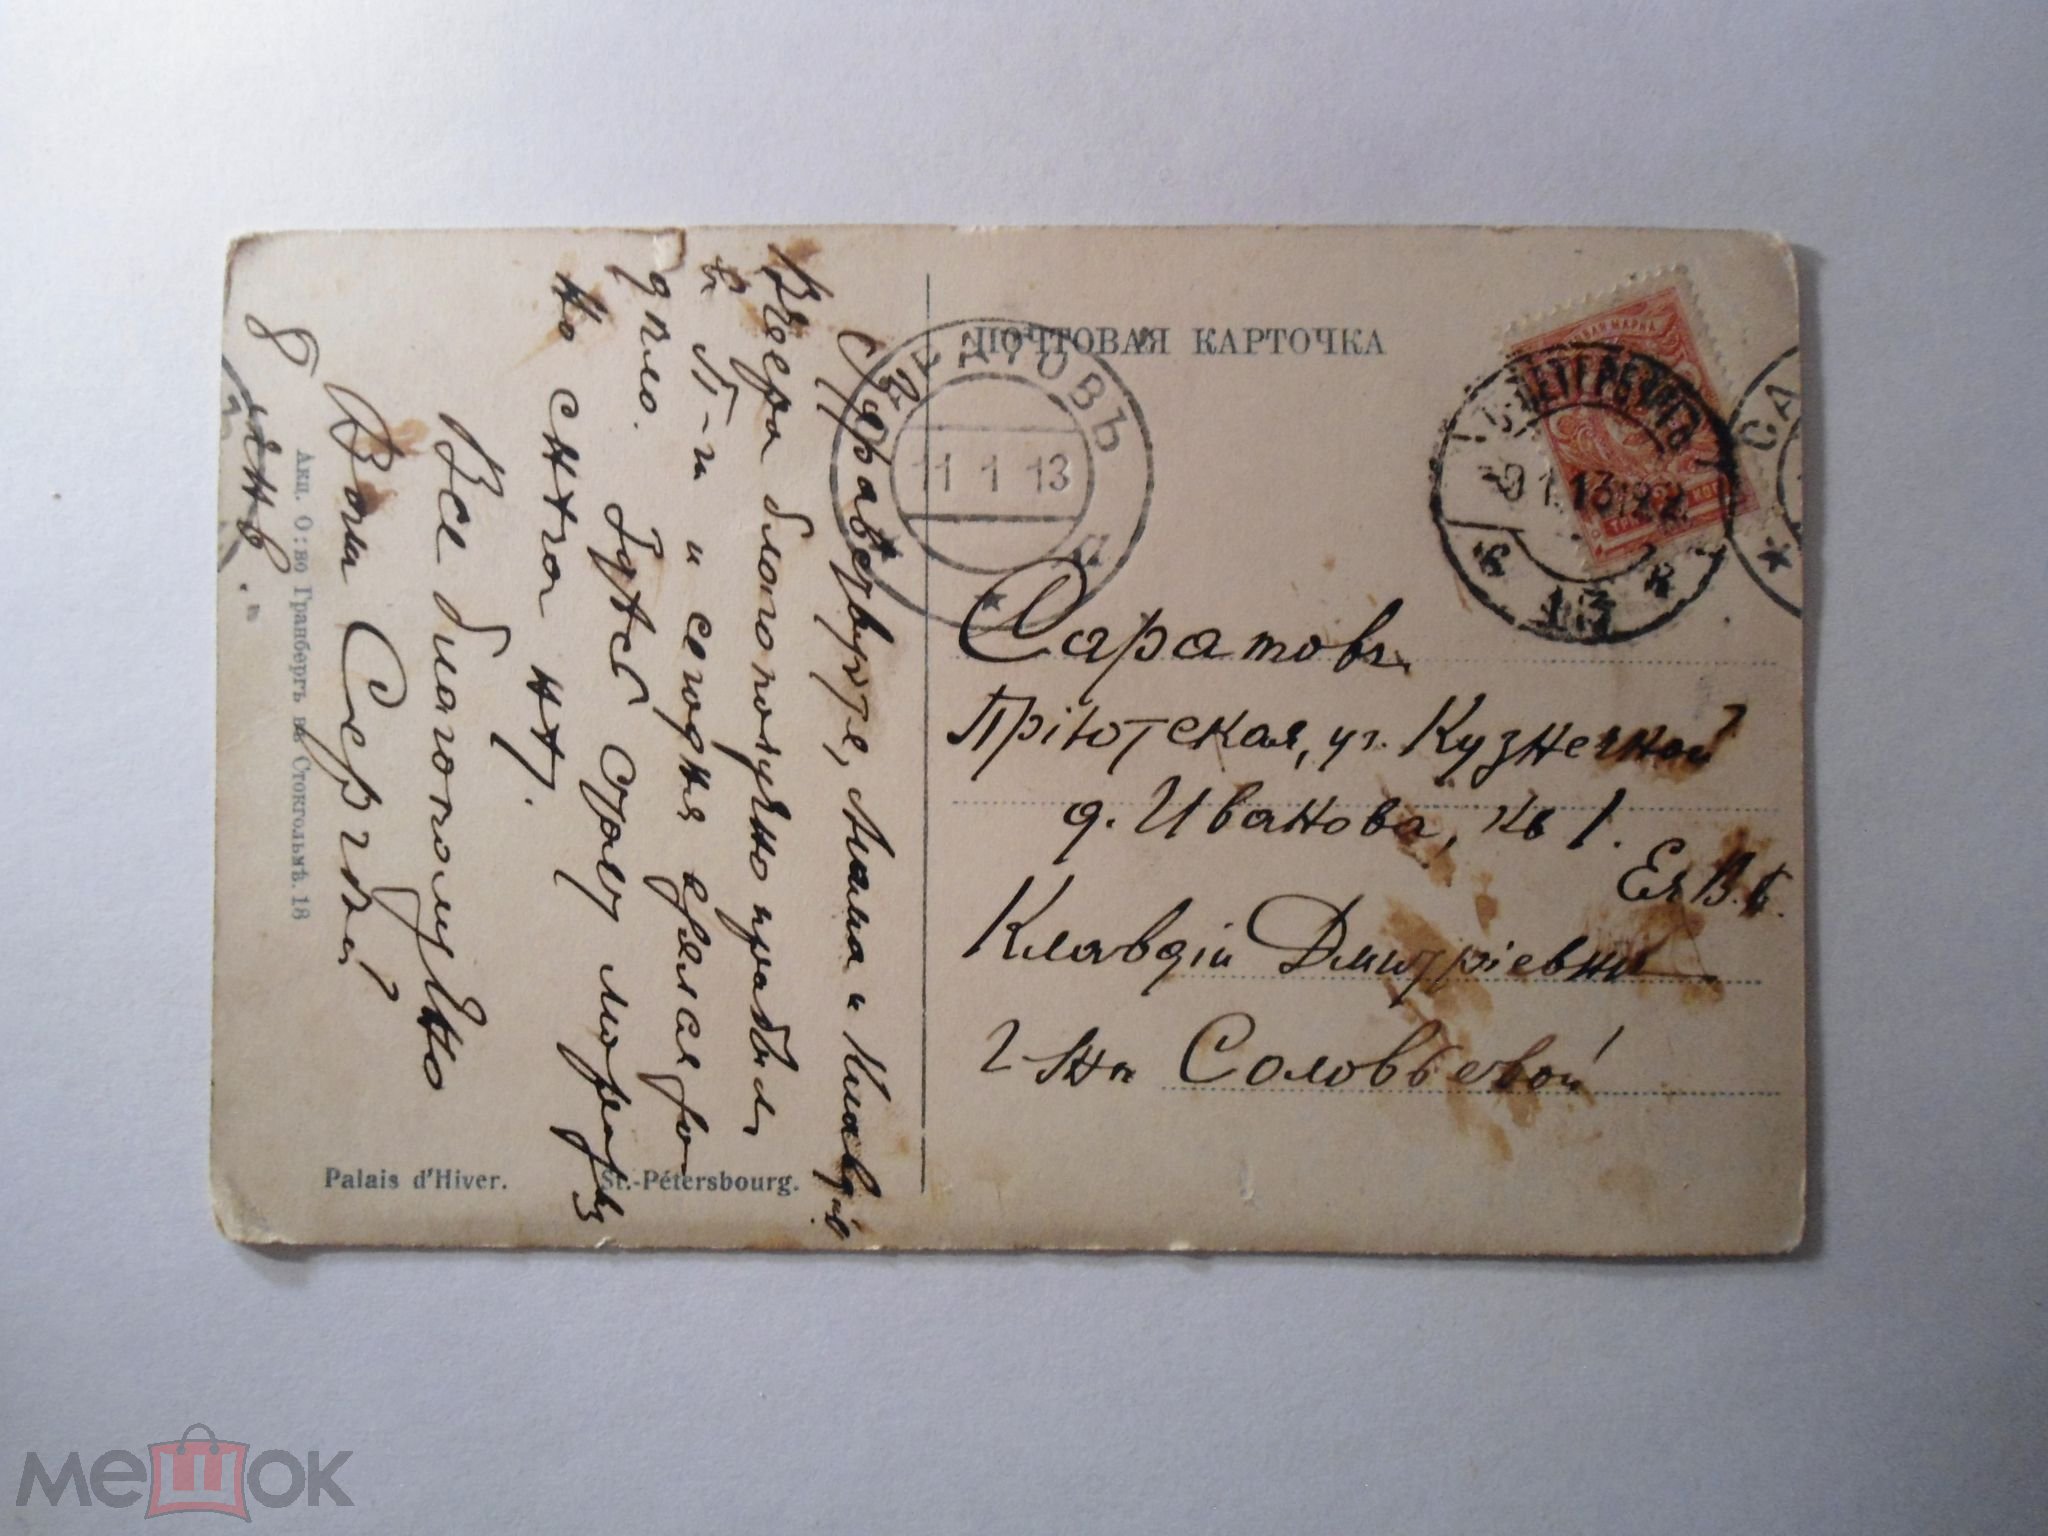 ПОЧТОВАЯ КАРТОЧКА
САРАТОВЪ
11 1 13
С.ПЕТЕРБУРГЪ
-9 1.13 22
13
СА
Саратовъ.
Пріютская, уг. Кузнечной
д. Иванова, кв 1.
Ея В.б.
Клавдіи Дмитріевнѣ
г-жѣ Соловьевой
Здравствуйте, Мама и Клавдія!
Вчера благополучно прибылъ
въ П-г и сегодня взялся за
дѣло. Здѣсь сразу морозъ
но снѣга нѣт.
Все благополучно
Вашъ Сергѣй
8 янв.
Акц. О: во Гранбергъ въ Стокгольмѣ. 18
Palais d'Hiver. St.-Pétersbourg.
мешок